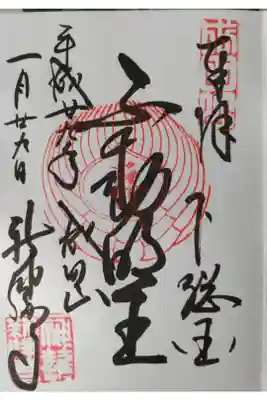 奉拝
下総国
不動明王
平成廿九年 成田山
一月廿九日 新勝寺